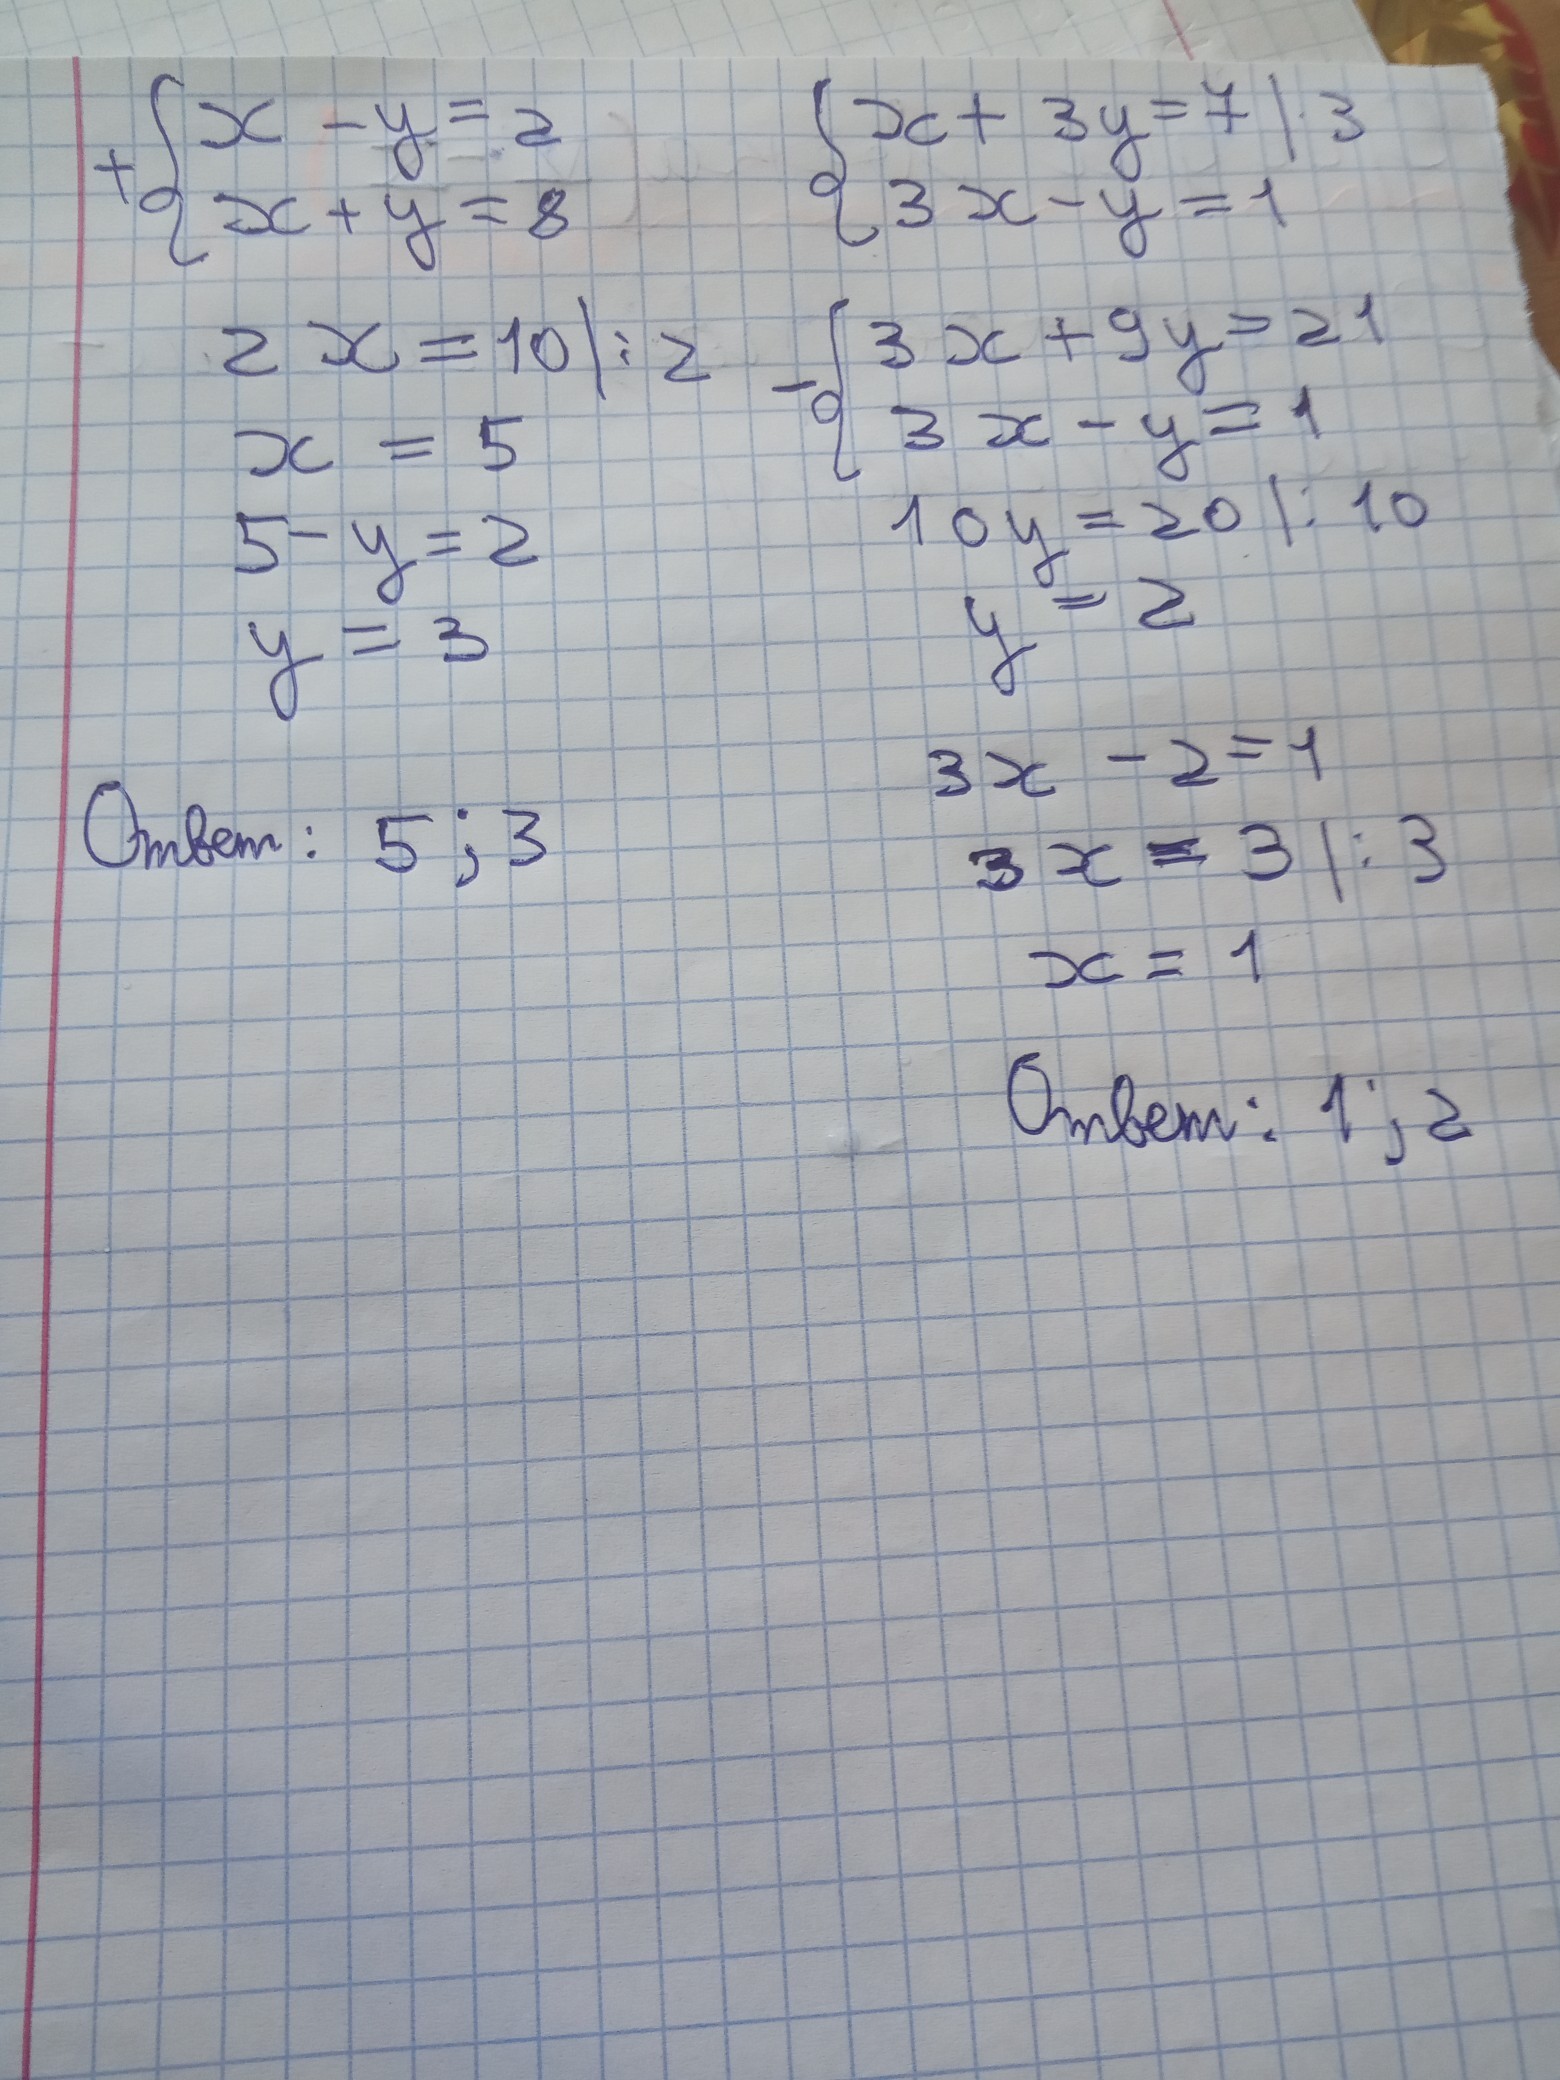 +{ x - y = 2
x + y = 8
2x = 10 | : 2
x = 5
5 - y = 2
y = 3
Ответ: 5 ; 3
{ x + 3y = 7 | · 3
3x - y = 1
-{ 3x + 9y = 21
3x - y = 1
10y = 20 | : 10
y = 2
3x - 2 = 1
3x = 3 | : 3
x = 1
Ответ: 1 ; 2